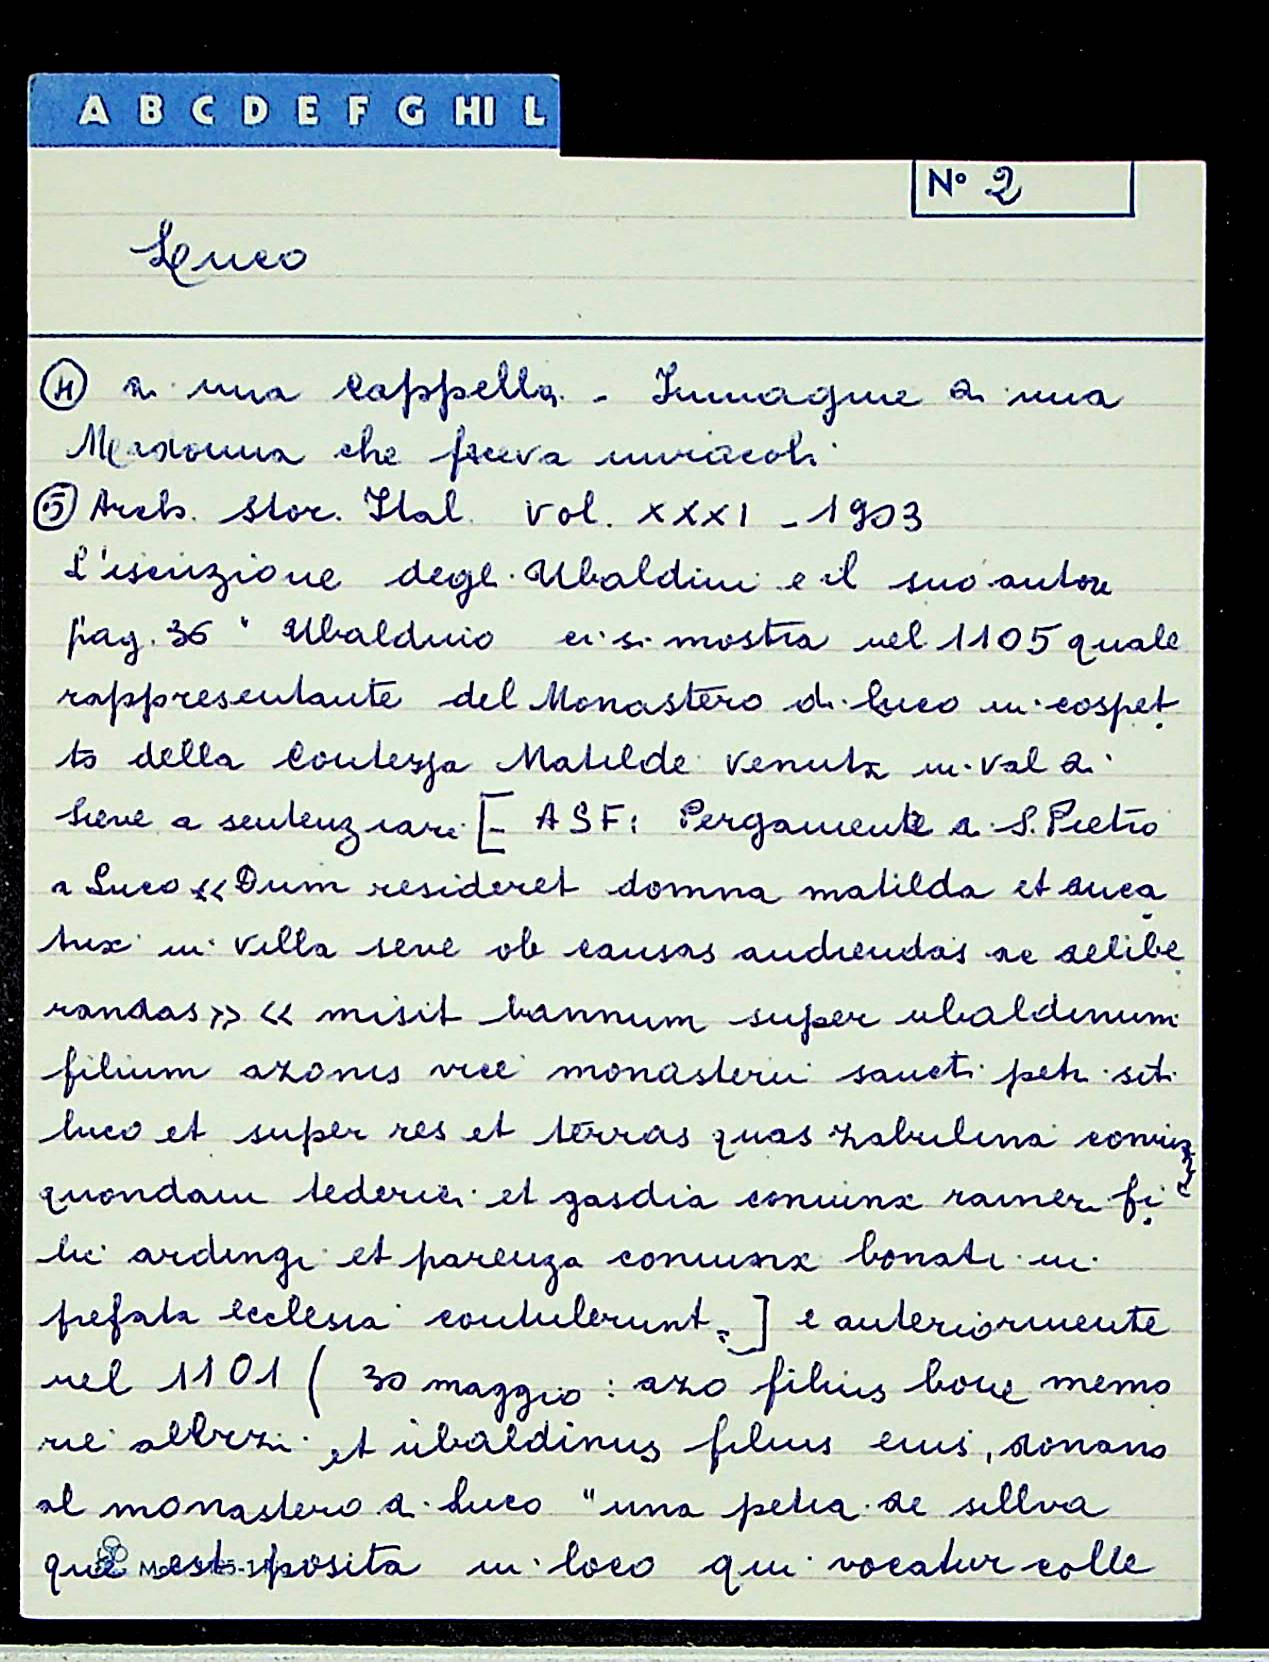 A B C D E F G HI L
N° 2
Luco
④ di una Cappella - Immagine di una
Madonna che faceva miracoli
⑤ Arch. Stor. Ital. Vol. XXXI - 1903
L'iscrizione degli Ubaldini e il suo autore
pag. 36 " Ubaldino ci si mostra nel 1105 quale
rappresentante del Monastero di Luco in cospet
to della Contessa Matilde venuta in val di
Sieve a sentenziare [ ASF: Pergamente di S. Pietro
a Luco << Dum resideret domna matilda et duca
trix in villa seve ob causas audiendas ac delibe
randas >> << misit bannum super ubaldinum
filium azonis vice monasterii sancti petri siti
luco et super res et terras quas zabulina coniux
quondam tederici et gasdia coniunx raineri fi
lii ardingi et parenza coniunx bonati in
prefata ecclesia contulerunt. ] e anteriormente
nel 1101 ( 30 maggio : azo filius bone memo
rie et ubaldinus filius eius, donano
al monastero di Luco "una petia de sillva
que est posita in loco qui vocatur colle